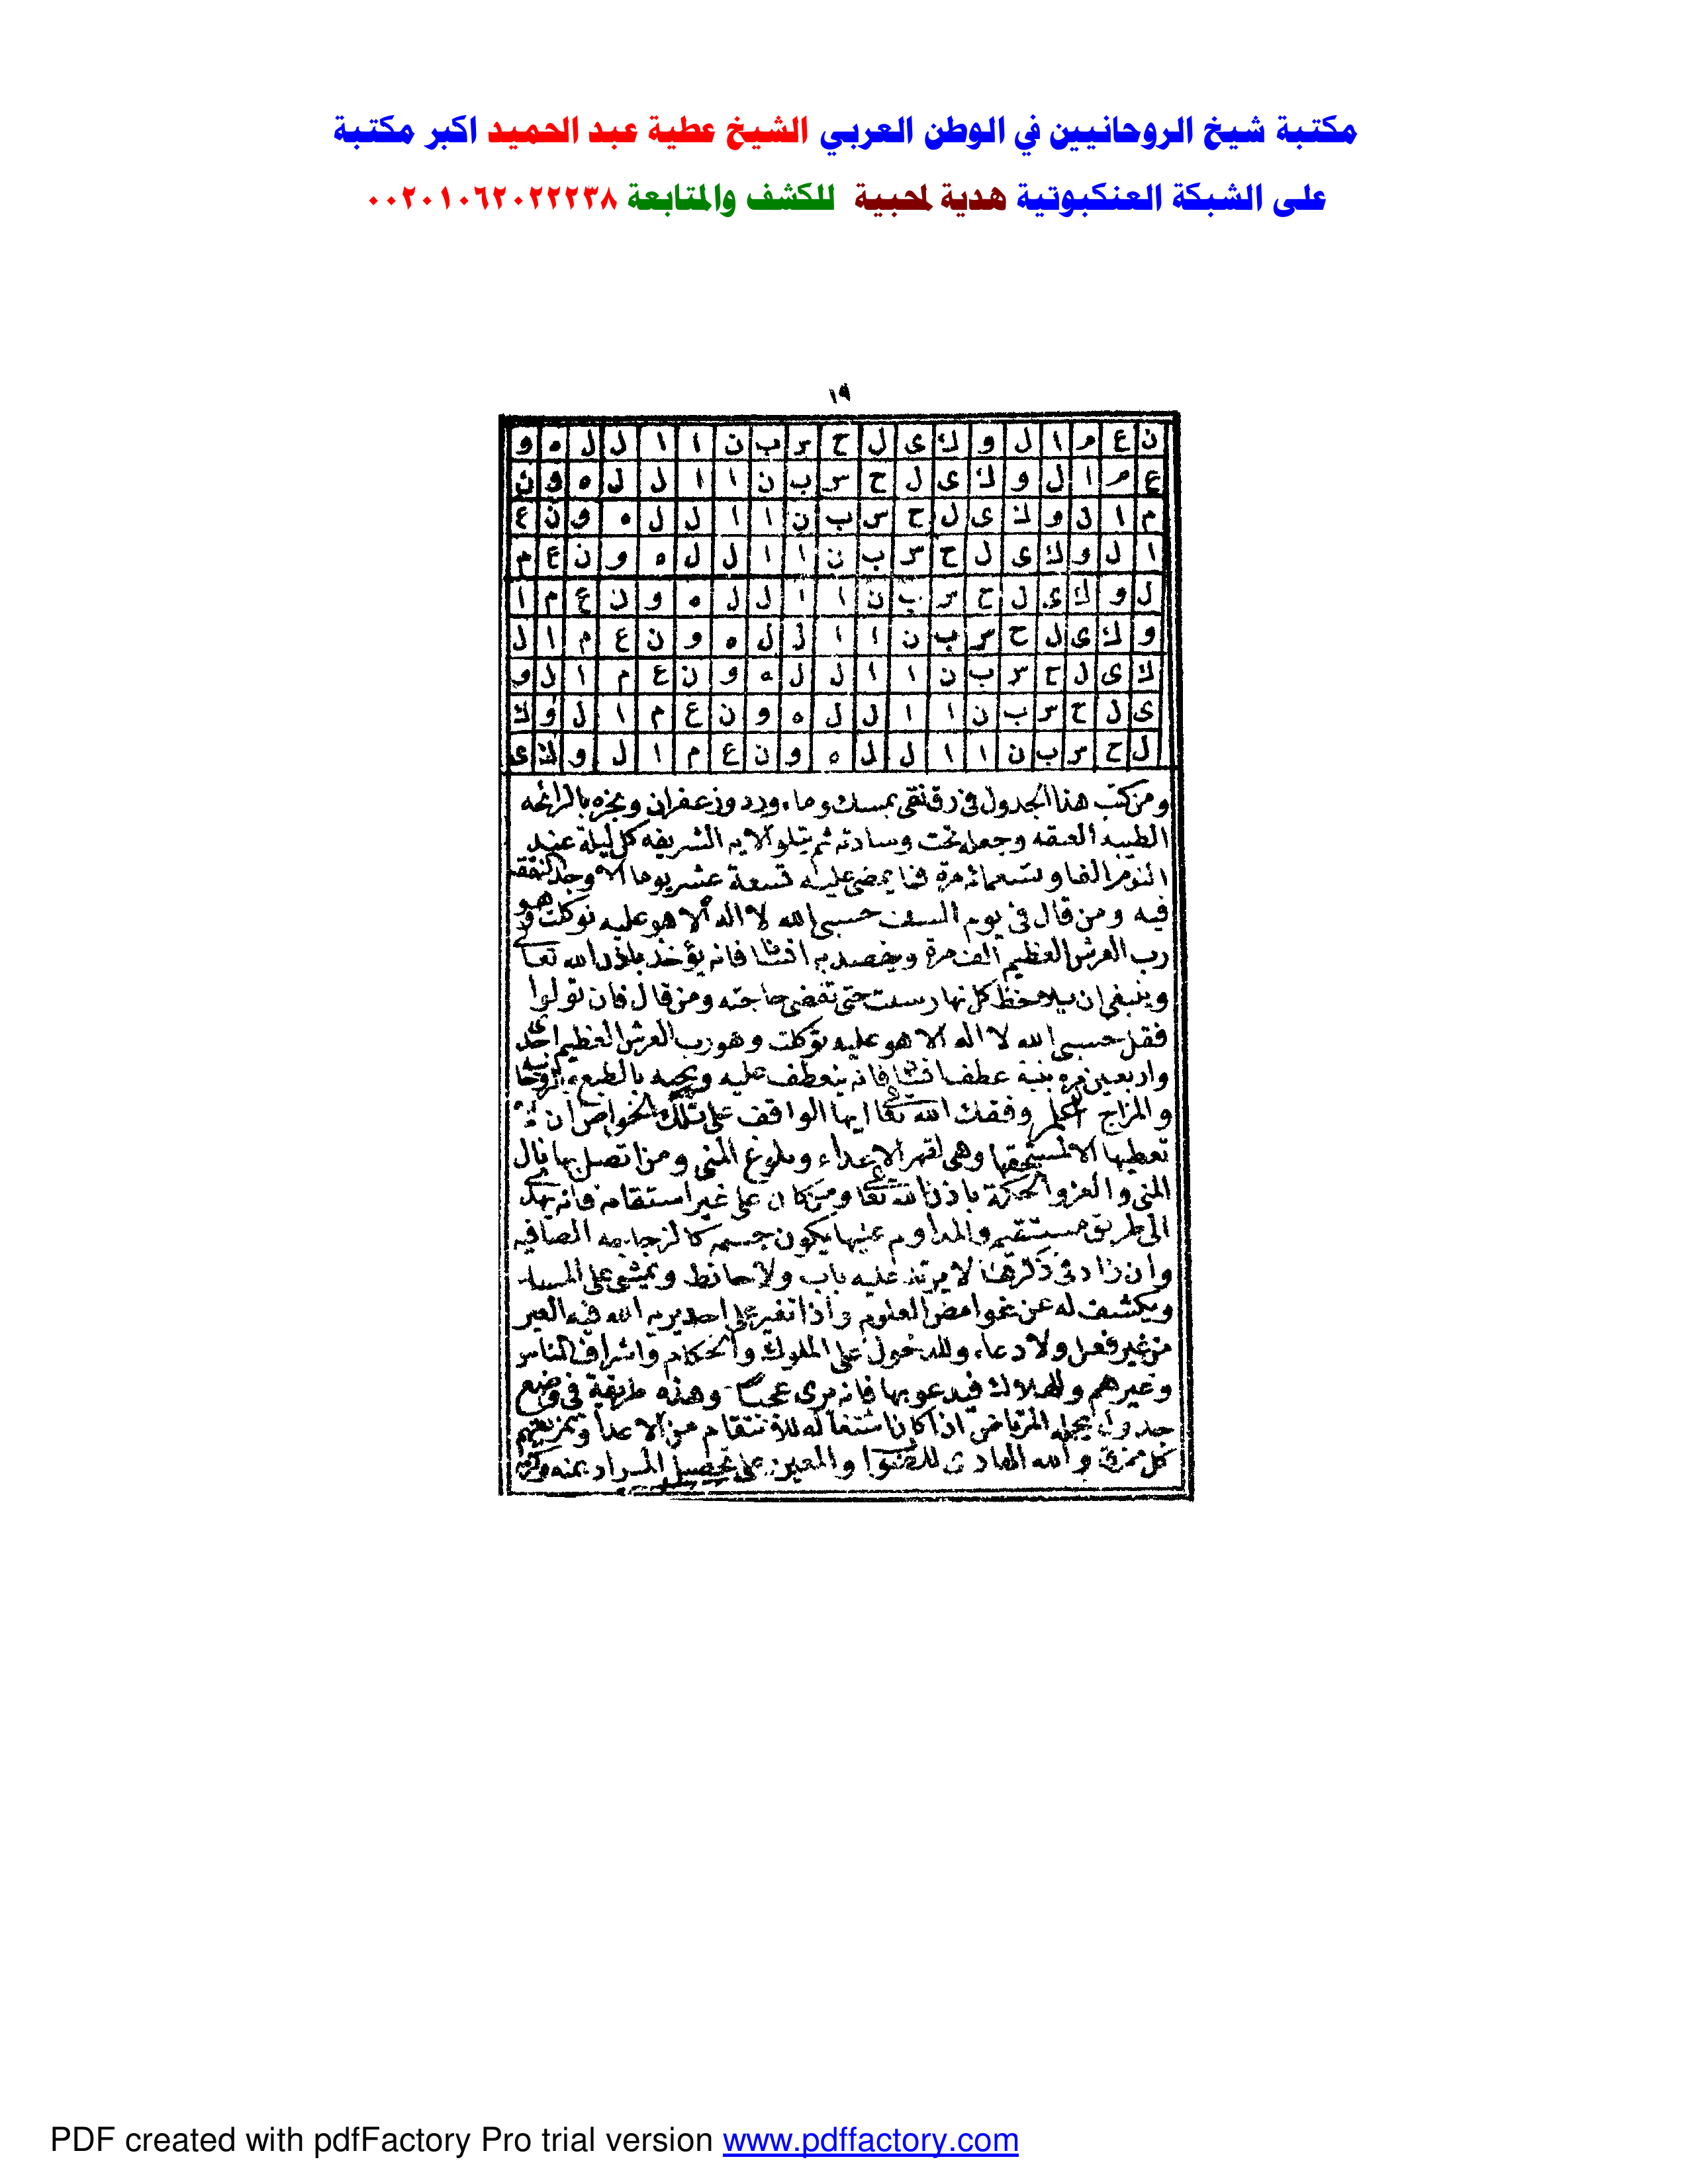 مكتبة شيخ الروحانيين في الوطن العربي الشيخ عطية عبد الحميد اكبر مكتبة
على الشبكة العنكبوتية هدية لمحبية للكشف والمتابعة ٠٠٢٠١٠٦٢٠٢٢٢٣٨
١٩
ن ع م ا ل و ك ى ل ح س ب ن ا ا ل ل ه و
ع م ا ل و ك ى ل ح س ب ن ا ا ل ل ه و ن
م ا ل و ك ى ل ح س ب ن ا ا ل ل ه و ن ع
ا ل و ك ى ل ح س ب ن ا ا ل ل ه و ن ع م
ل و ك ى ل ح س ب ن ا ا ل ل ه و ن ع م ا
و ك ى ل ح س ب ن ا ا ل ل ه و ن ع م ا ل
ك ى ل ح س ب ن ا ا ل ل ه و ن ع م ا ل و
ى ل ح س ب ن ا ا ل ل ه و ن ع م ا ل و ك
ل ح س ب ن ا ا ل ل ه و ن ع م ا ل و ك ى
ومن كتب هذا الجدول فى رق نقى بمسك وماء ورد وزعفران وبخره بالرائحه
الطيبه العبقه وجعله تحت وسادته ثم يتلو الايه الشريفه كل ليلة عند
النوم الفا وتسعمائه مرة فما يمضى عليه تسعة عشر يوما الا وجد النفقة
فيه ومن قال فى يوم السبت حسبى الله لا اله الا هو عليه توكلت وهو
رب العرش العظيم الف مرة ويقصد به انسانا فانه يؤخذ باذن الله تعالى
وينبغى ان يلاحظ كل نهار سبت حتى تقضى حاجته ومن قال فان تولوا
فقل حسبى الله لا اله الا هو عليه توكلت وهو رب العرش العظيم احدى
واربعين مره بنية عطف انسان فانه ينعطف عليه ويحبه بالطبع والروحانيه
والمزاج اعلم وفقك الله تعالى ايها الواقف على تلك الخواص ان لا
تعطيها الا لمستحقها وهى لقهر الاعداء وبلوغ المنى ومن اتصل بها نال
المنى والعز والحكمة باذن الله تعالى ومن كان على غير استقامه فانه يهدى
الى طريق مستقيم والمداوم عليها يكون جسمه كالزجاجه الصافيه
وان زاد فى ذكرها لا يرتد عليه باب ولا حائط ويمشى على الماء
ويكشف له عن غوامض العلوم واذا تغير على احد يريه الله فيه العبر
من غير فعل ولا دعاء وللدخول على الملوك والحكام واشراف الناس
وغيرهم وللهلاك فيدعو بها فانه يرى عجبا وهذه طريقة فى وضع
جدول يحمله المرتاض اذا كان اشتغاله للانتقام من الاعداء وتمزيقهم
كل ممزق والله الهادى للصواب والمعين على تحصيل المراد بمنه وكرمه
PDF created with pdfFactory Pro trial version www.pdffactory.com